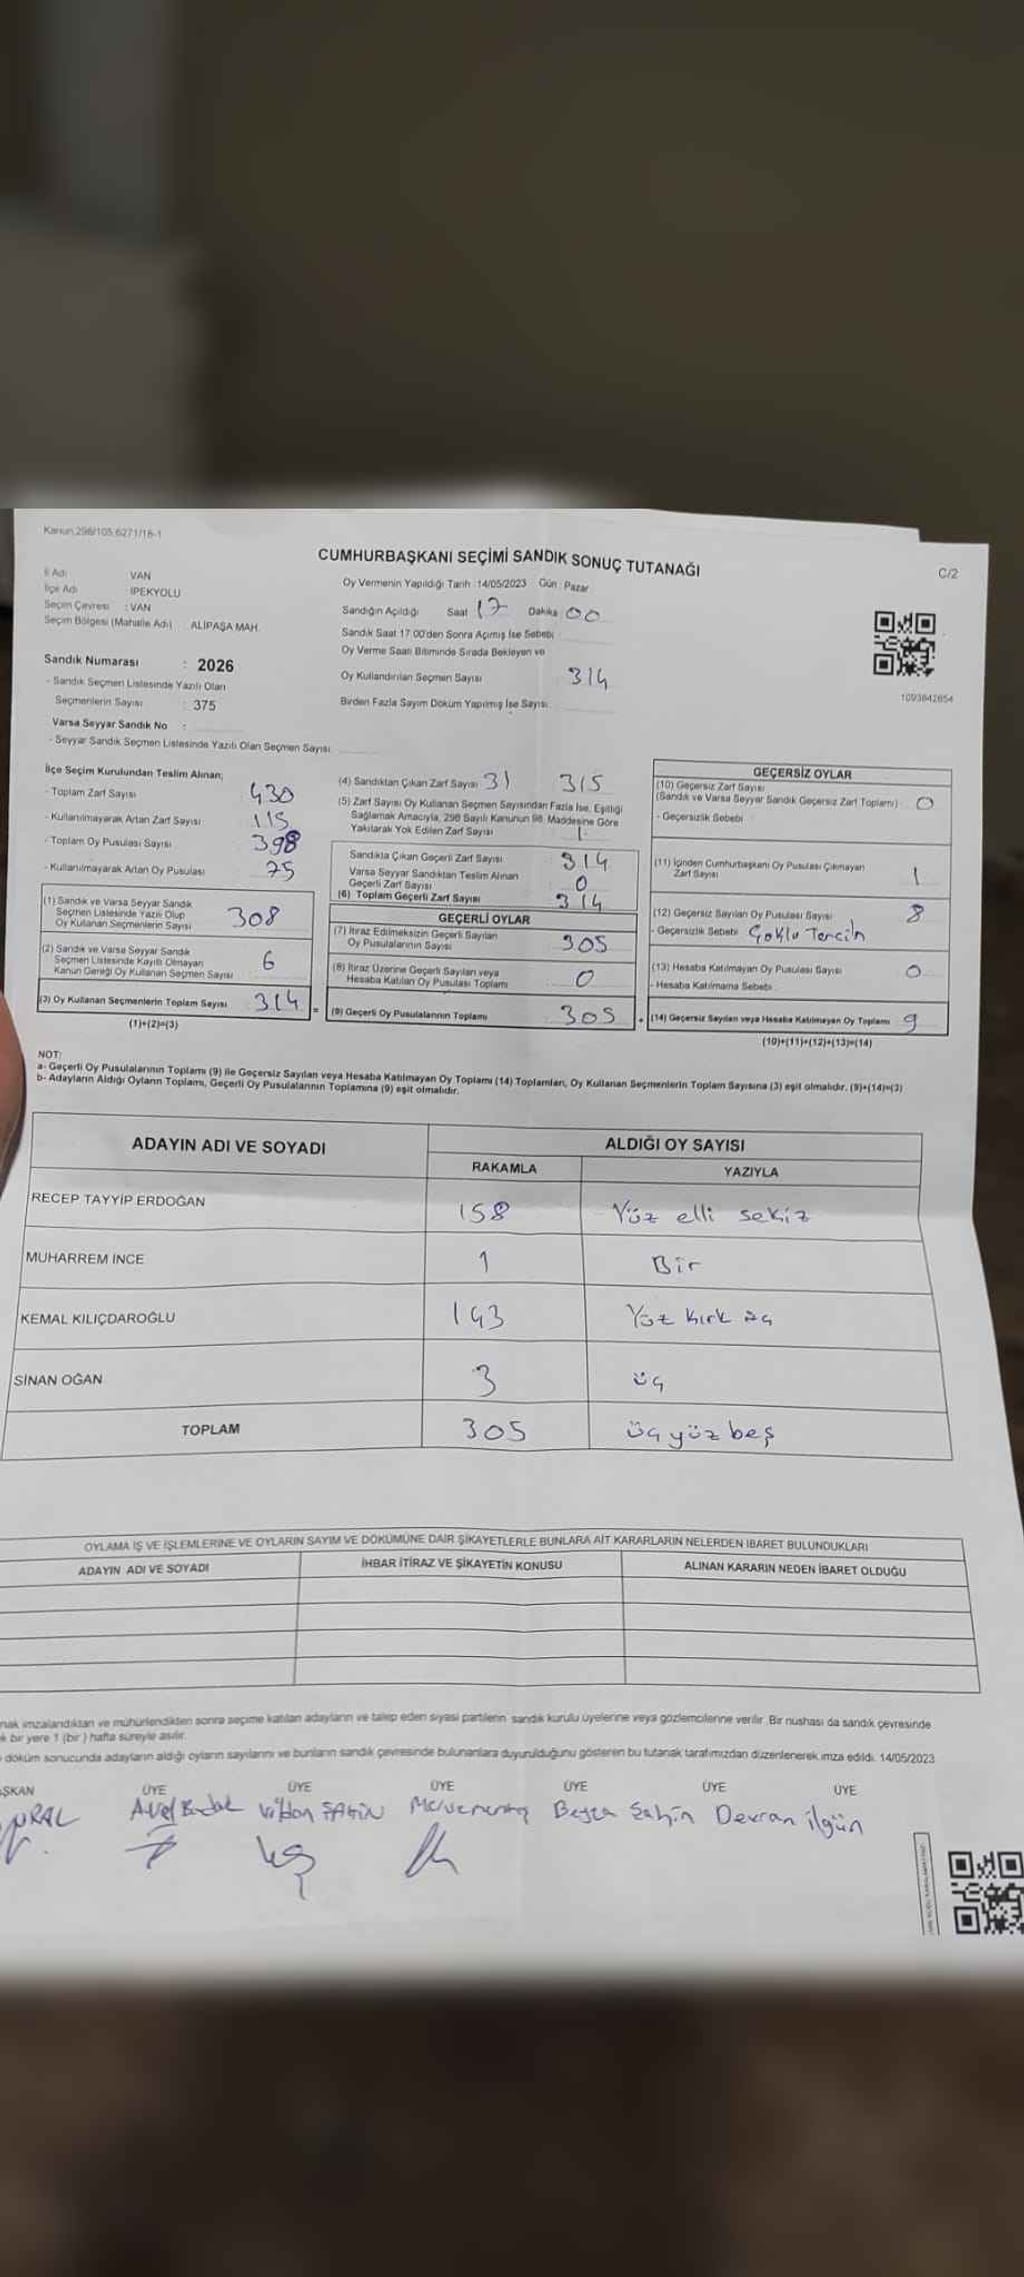 Kanun,298/105,6271/16-1
CUMHURBAŞKANI SEÇİMİ SANDIK SONUÇ TUTANAĞI
C/2
İl Adı VAN
İlçe Adı İPEKYOLU
Seçim Çevresi : VAN
Seçim Bölgesi (Mahalle Adı) ALİPAŞA MAH.
Sandık Numarası : 2026
- Sandık Seçmen Listesinde Yazılı Olan
Seçmenlerin Sayısı : 375
Varsa Seyyar Sandık No :
- Seyyar Sandık Seçmen Listesinde Yazılı Olan Seçmen Sayısı
Oy Vermenin Yapıldığı Tarih :14/05/2023 Gün : Pazar
Sandığın Açıldığı Saat 17 Dakika 00
Sandık Saat 17:00'den Sonra Açımış İse Sebebi
Oy Verme Saati Bitiminde Sırada Bekleyen ve
Oy Kullandırılan Seçmen Sayısı 314
Birden Fazla Sayım Döküm Yapılmış İse Sayısı
1093642654
İlçe Seçim Kurulundan Teslim Alınan;
- Toplam Zarf Sayısı 430
- Kullanılmayarak Artan Zarf Sayısı 115
- Toplam Oy Pusulası Sayısı 398
- Kullanılmayarak Artan Oy Pusulası 75
(1) Sandık ve Varsa Seyyar Sandık
Seçmen Listesinde Yazılı Olup
Oy Kullanan Seçmenlerin Sayısı 308
(2) Sandık ve Varsa Seyyar Sandık
Seçmen Listesinde Kayıtlı Olmayan
Kanun Gereği Oy Kullanan Seçmen Sayısı 6
(3) Oy Kullanan Seçmenlerin Toplam Sayısı 314 =
(1)+(2)=(3)
(4) Sandıktan Çıkan Zarf Sayısı 31 315
(5) Zarf Sayısı Oy Kullanan Seçmen Sayısından Fazla İse, Eşitliği
Sağlamak Amacıyla, 298 Sayılı Kanunun 98. Maddesine Göre
Yakılarak Yok Edilen Zarf Sayısı 1
Sandıkta Çıkan Geçerli Zarf Sayısı 314
Varsa Seyyar Sandıktan Teslim Alınan
Geçerli Zarf Sayısı 0
(6) Toplam Geçerli Zarf Sayısı 314
GEÇERLİ OYLAR
(7) İtiraz Edilmeksizin Geçerli Sayılan
Oy Pusulalarının Sayısı 305
(8) İtiraz Üzerine Geçerli Sayılan veya
Hesaba Katılan Oy Pusulası Toplamı 0
(9) Geçerli Oy Pusulalarının Toplamı 305 +
GEÇERSİZ OYLAR
(10) Geçersiz Zarf Sayısı
(Sandık ve Varsa Seyyar Sandık Geçersiz Zarf Toplamı) 0
- Geçersizlik Sebebi
(11) İçinden Cumhurbaşkanı Oy Pusulası Çıkmayan
Zarf Sayısı 1
(12) Geçersiz Sayılan Oy Pusulası Sayısı 8
- Geçersizlik Sebebi Çoklu Tercih
(13) Hesaba Katılmayan Oy Pusulası Sayısı 0
- Hesaba Katılmama Sebebi
(14) Geçersiz Sayılan veya Hesaba Katılmayan Oy Toplamı 9
(10)+(11)+(12)+(13)=(14)
NOT:
a- Geçerli Oy Pusulalarının Toplamı (9) ile Geçersiz Sayılan veya Hesaba Katılmayan Oy Toplamı (14) Toplamları, Oy Kullanan Seçmenlerin Toplam Sayısına (3) eşit olmalıdır. (9)+(14)=(3)
b- Adayların Aldığı Oyların Toplamı, Geçerli Oy Pusulalarının Toplamına (9) eşit olmalıdır.
ADAYIN ADI VE SOYADI ALDIĞI OY SAYISI
RAKAMLA YAZIYLA
RECEP TAYYİP ERDOĞAN 158 Yüz elli sekiz
MUHARREM İNCE 1 Bir
KEMAL KILIÇDAROĞLU 143 Yüz kırk üç
SİNAN OĞAN 3 üç
TOPLAM 305 üç yüz beş
OYLAMA İŞ VE İŞLEMLERİNE VE OYLARIN SAYIM VE DÖKÜMÜNE DAİR ŞİKAYETLERLE BUNLARA AİT KARARLARIN NELERDEN İBARET BULUNDUKLARI
ADAYIN ADI VE SOYADI İHBAR İTİRAZ VE ŞİKAYETİN KONUSU ALINAN KARARIN NEDEN İBARET OLDUĞU
nak imzalandıktan ve mühürlendikten sonra seçime katılan adayların ve talep eden siyasi partilerin sandık kurulu üyelerine veya gözlemcilerine verilir. Bir nüshası da sandık çevresinde
k bir yere 1 (bir) hafta süreyle asılır.
döküm sonucunda adayların aldığı oyların sayılarını ve bunların sandık çevresinde bulunanlara duyurulduğunu gösteren bu tutanak tarafımızdan düzenlenerek imza edildi. 14/05/2023
ŞKAN ÜYE ÜYE ÜYE ÜYE ÜYE ÜYE
Vildan ŞAHİN Beyza Şahin Devran ilgün